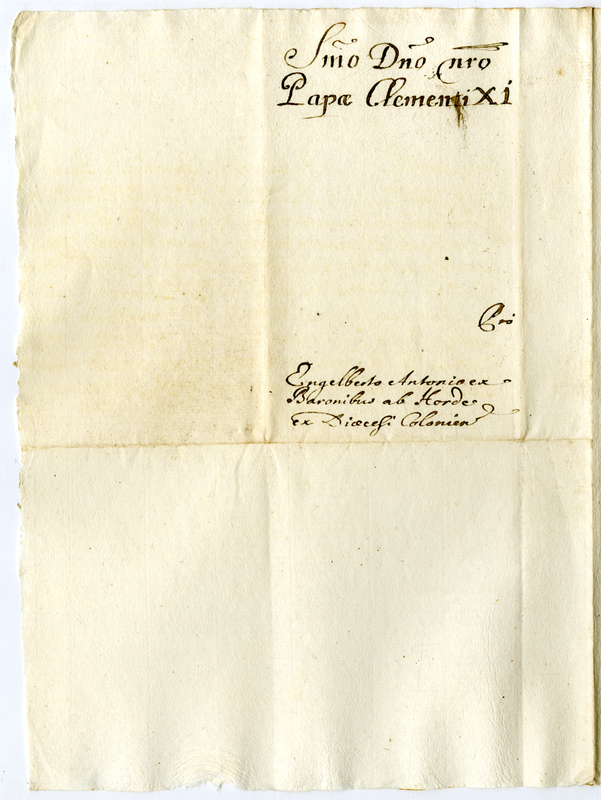 Smo Dno nro
Papæ Clementi XI
Pro
Engelberto Antonio ex
Baronibus ab Horde
ex Diæcesi Colonien